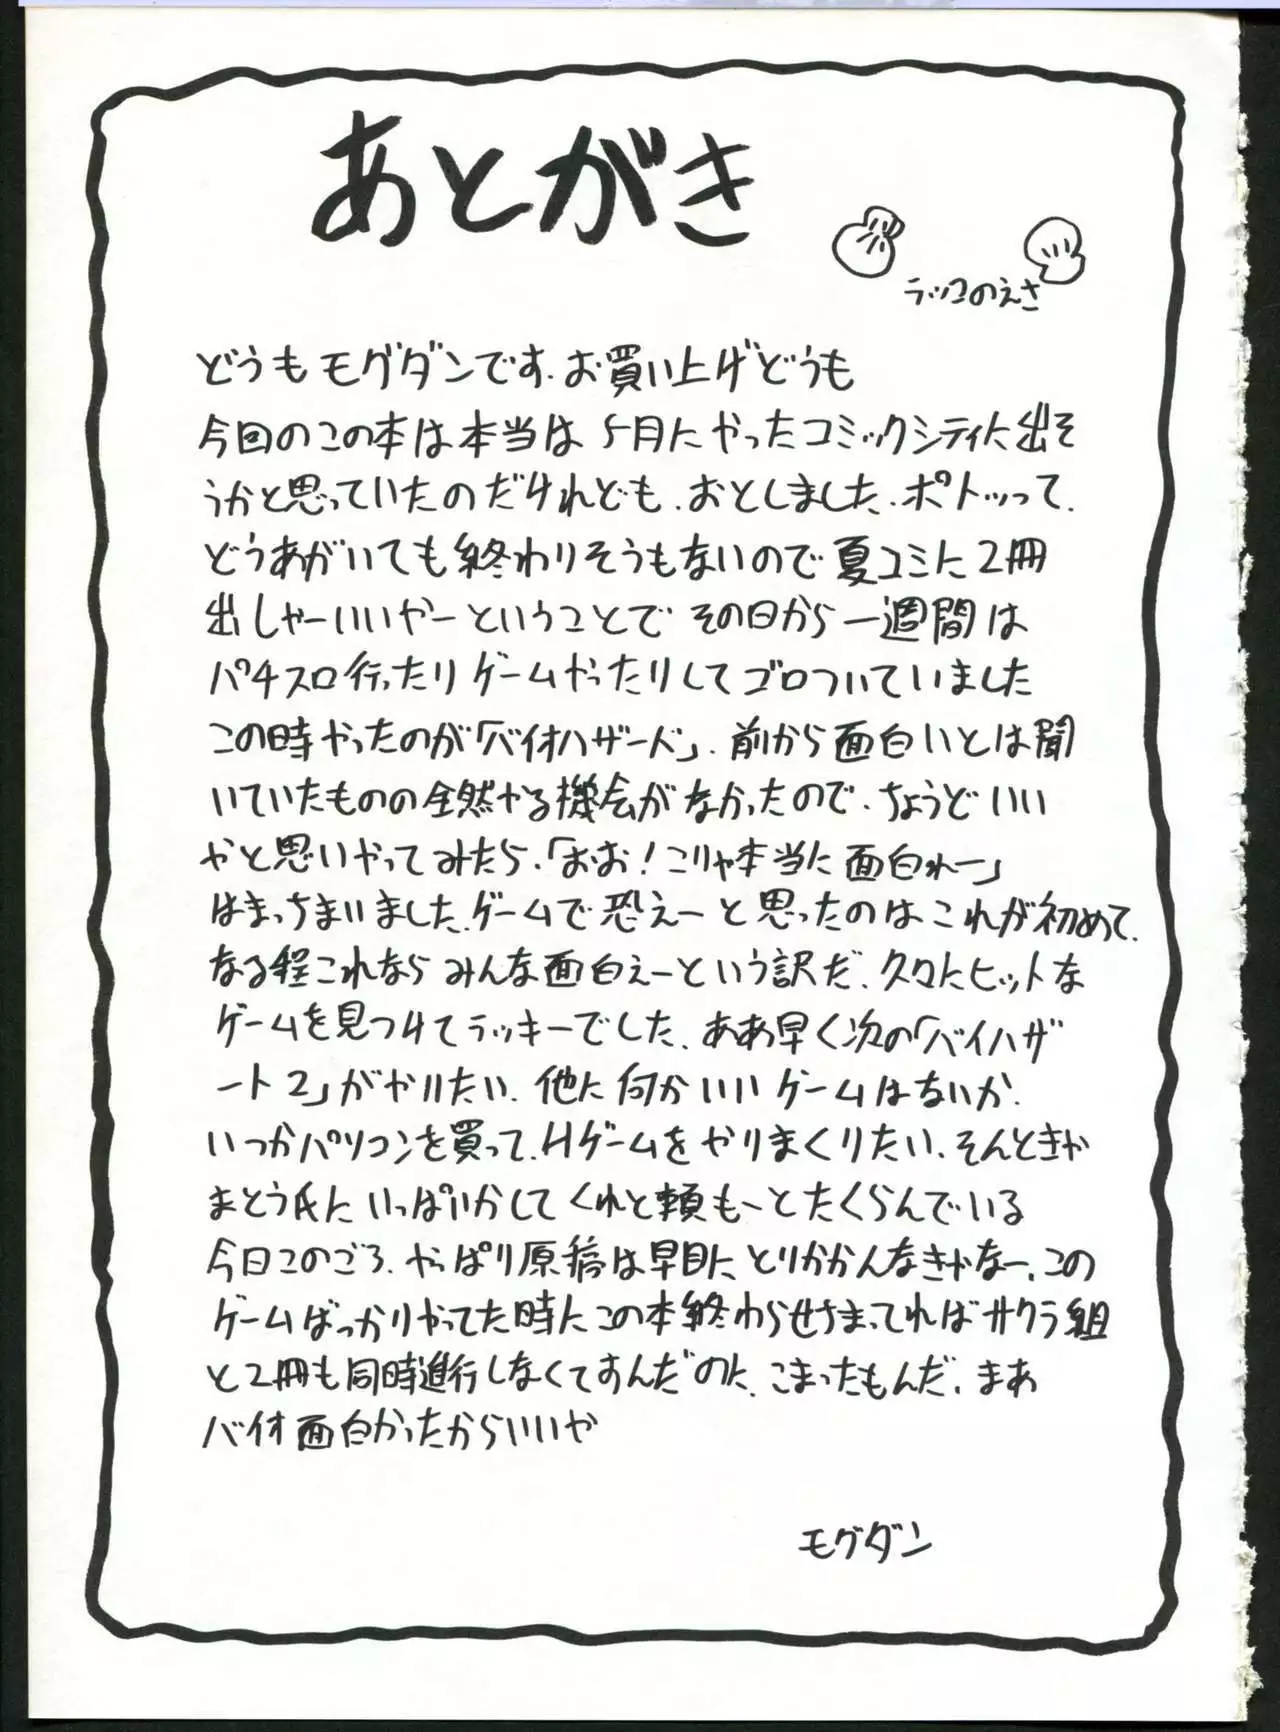 あとがき
ラッコのえさ
どうもモグダンです．お買い上げどうも
今回のこの本は本当は5月にやったコミックシティに出そ
うかと思っていたのだけれども．おとしました．ポトッって．
どうあがいても終わりそうもないので夏コミに2冊
出しゃーいいやーということでその日から一週間は
パチスロ行ったりゲームやったりしてゴロついていました
この時やったのが「バイオハザード」．前から面白いとは聞
いていたものの全然やる機会がなかったので．ちょうどいい
やと思いやってみたら．「おお！こりゃ本当に面白れー」
はまっちまいました．ゲームで恐えーと思ったのはこれが初めて．
なる程これならみんな面白えーという訳だ．久々にヒットな
ゲームを見つけてラッキーでした．ああ早く次の「バイハザ
ート2」がやりたい．他に何かいいゲームはないか．
いつかパソコンを買って．Hゲームをやりまくりたい．そんときゃ
まとう氏にいっぱいかしてくれと頼もーとたくらんでいる
今日このごろ．やっぱり原稿は早目にとりかかんなきゃなー．この
ゲームばっかりやってた時にこの本終わらせちまってればサクラ組
と2冊も同時進行しなくてすんだのに．こまったもんだ．まあ
バイオ面白かったからいいや
モグダン